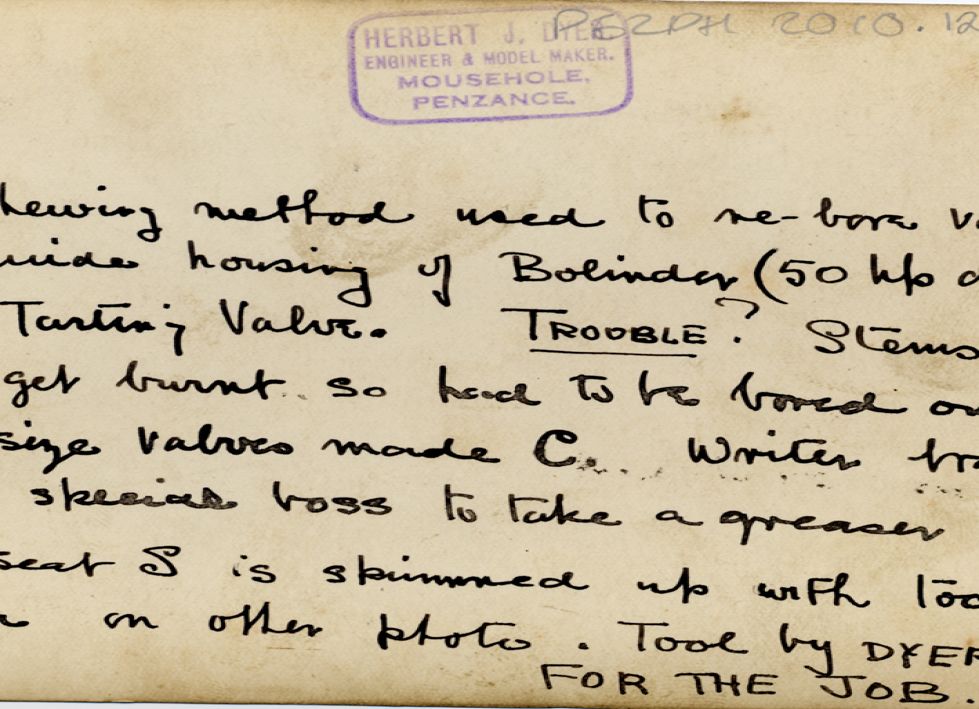 HERBERT J. DYER
ENGINEER & MODEL MAKER.
MOUSEHOLE,
PENZANCE.
PEZPH 2010.12
hewing method used to re-bore va
uide housing of Bolinder (50 hp
Tarting Valve. TROUBLE? Stems
get burnt so had to be bored ou
size valves made C. Writer bra
special boss to take a greaser
seat S is skimmed up with too
on other photo. Tool by DYER
FOR THE JOB.